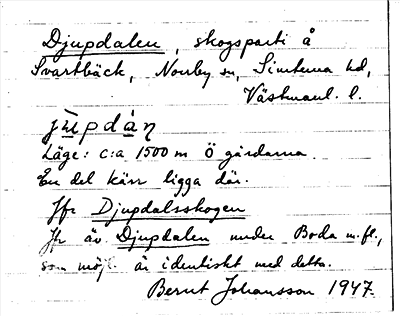 Djupdalen, skogsparti å
Svartbäck, Norrby sn, Simtuna hd,
Västmanl. l.
jùpdàṇ
Läge: c:a 1500 m Ö gårdarna.
En del kärr ligga där.
Jfr Djupdalsskogen
Jfr äv. Djupdalen under Boda m.fl.,
som möjl. är identiskt med detta.
Bernt Johansson 1947.